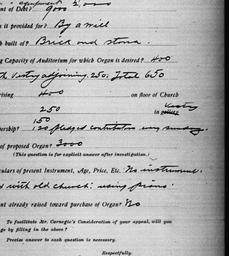 nt of Debt? 9000
is it provided for? By a mill
h built of? Brick and stone.
g Capacity of Auditorium for which Organ is desired? 400
th Vestry adjoining. 250. Total 650
rising 400 on floor of Church
250 in
150
ership? 120 pledged contributors every sunday.
of proposed Organ? 3000
(This question is for explicit answer after investigation.)
culars of present Instrument, Age, Price, Etc. No instrument.
with old church. using piano.
nt already raised toward purchase of Organ? No
To facilitate Mr. Carnegie's Consideration of your appeal, will you
ge by filling in the above?
Precise answer to each question is necessary.
Respectfully,